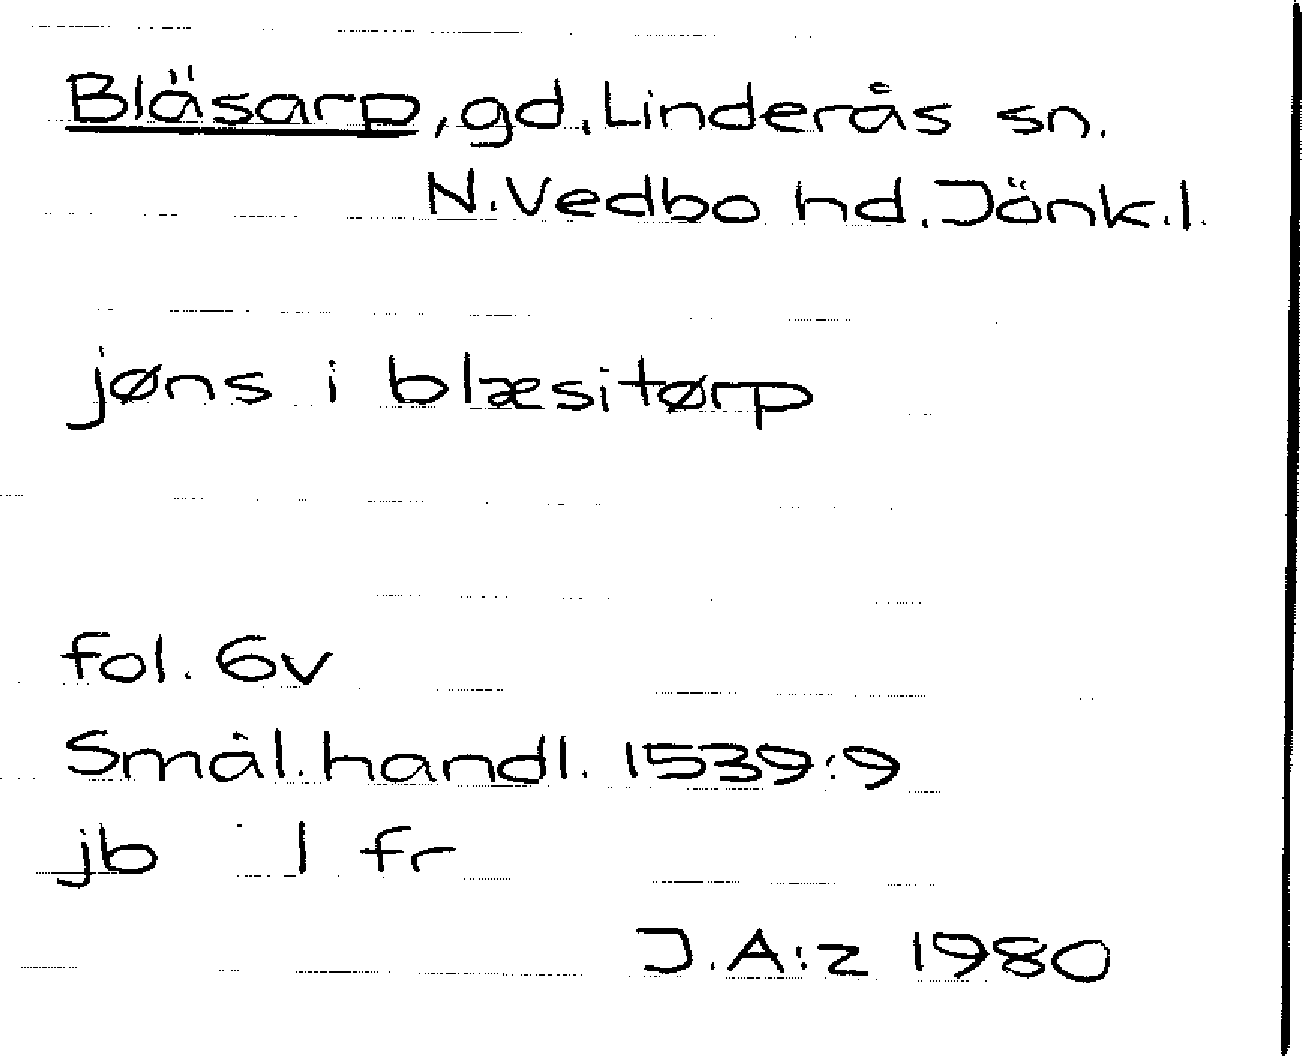 Bläsarp, gd, Linderås sn.
N. Vedbo hd. Jönk. l.
jøns i blæsitørp
fol. 6v
Smål. handl. 1539:9
jb 1 fr
J.A:z 1980